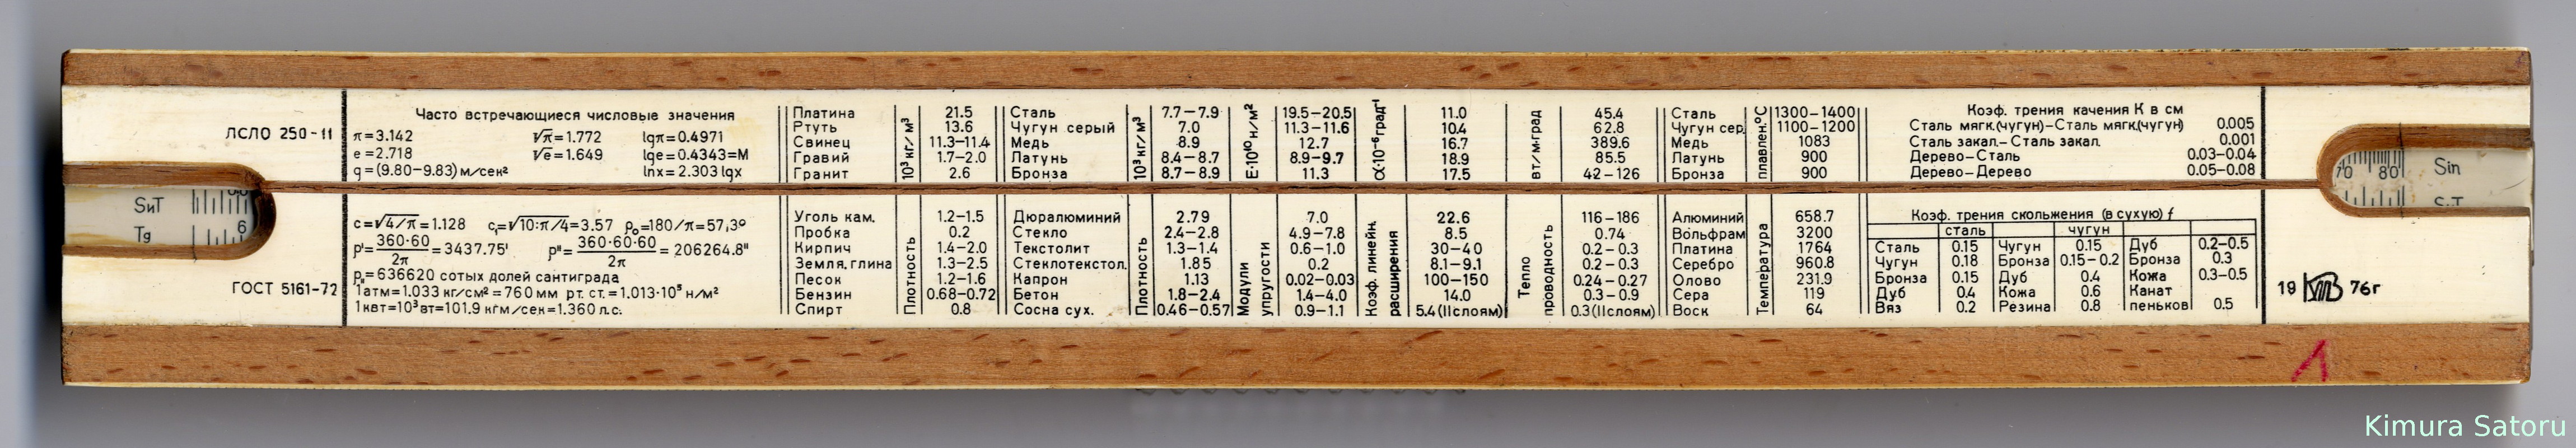 ЛСЛО 250-11
Часто встречающиеся числовые значения
π=3.142 √π=1.772 lgπ=0.4971
e=2.718 √e=1.649 lge=0.4343=M
g=(9.80-9.83) м/сек² lnx=2.303 lgx
Платина 21.5
Ртуть 13.6
Свинец 11.3-11.4
Гравий 1.7-2.0
Гранит 2.6
10³ кг/м³
Сталь 7.7-7.9 19.5-20.5 11.0 45.4
Чугун серый 7.0 11.3-11.6 10.4 62.8
Медь 8.9 12.7 16.7 389.6
Латунь 8.4-8.7 8.9-9.7 18.9 85.5
Бронза 8.7-8.9 11.3 17.5 42-126
10³ кг/м³
E·10¹⁰ н/м²
α·10⁻⁶ град⁻¹
вт/м·град
Сталь 1300-1400
Чугун сер. 1100-1200
Медь 1083
Латунь 900
Бронза 900
плавлен.°C
Коэф. трения качения К в см
Сталь мягк.(чугун)-Сталь мягк.(чугун) 0.005
Сталь закал.-Сталь закал. 0.001
Дерево-Сталь 0.03-0.04
Дерево-Дерево 0.05-0.08
70 80
Sin
S-T
SиT
Tg
6
ГОСТ 5161-72
c=√4/π=1.128 c₁=√10·π/4=3.57 ρ₀=180/π=57,3°
ρ'=360·60/2π=3437.75' ρ"=360·60·60/2π=206264.8"
ρ„=636620 сотых долей сантиграда
1атм=1.033 кг/см²=760 мм рт. ст.=1.013·10⁵ н/м²
1квт=10³вт=101.9 кгм/сек=1.360 л.с.
Уголь кам. 1.2-1.5
Пробка 0.2
Кирпич 1.4-2.0
Земля, глина 1.3-2.5
Песок 1.2-1.6
Бензин 0.68-0.72
Спирт 0.8
Плотность
Дюралюминий 2.79 7.0 22.6 116-186
Стекло 2.4-2.8 4.9-7.8 8.5 0.74
Текстолит 1.3-1.4 0.6-1.0 30-40 0.2-0.3
Стеклотекстол. 1.85 0.2 8.1-9.1 0.2-0.3
Капрон 1.13 0.02-0.03 100-150 0.24-0.27
Бетон 1.8-2.4 1.4-4.0 14.0 0.3-0.9
Сосна сух. 0.46-0.57 0.9-1.1 5.4(IIслоям) 0.3(IIслоям)
Плотность
Модули
упругости
Коэф. линейн.
расширения
Тепло
проводность
Алюминий 658.7
Вольфрам 3200
Платина 1764
Серебро 960.8
Олово 231.9
Сера 119
Воск 64
Температура
Коэф. трения скольжения (в сухую) f
сталь чугун
Сталь 0.15 Чугун 0.15 Дуб 0.2-0.5
Чугун 0.18 Бронза 0.15-0.2 Бронза 0.3
Бронза 0.15 Дуб 0.4 Кожа 0.3-0.5
Дуб 0.4 Кожа 0.6 Канат
Вяз 0.2 Резина 0.8 пеньков 0.5
19 76г
1
Kimura Satoru